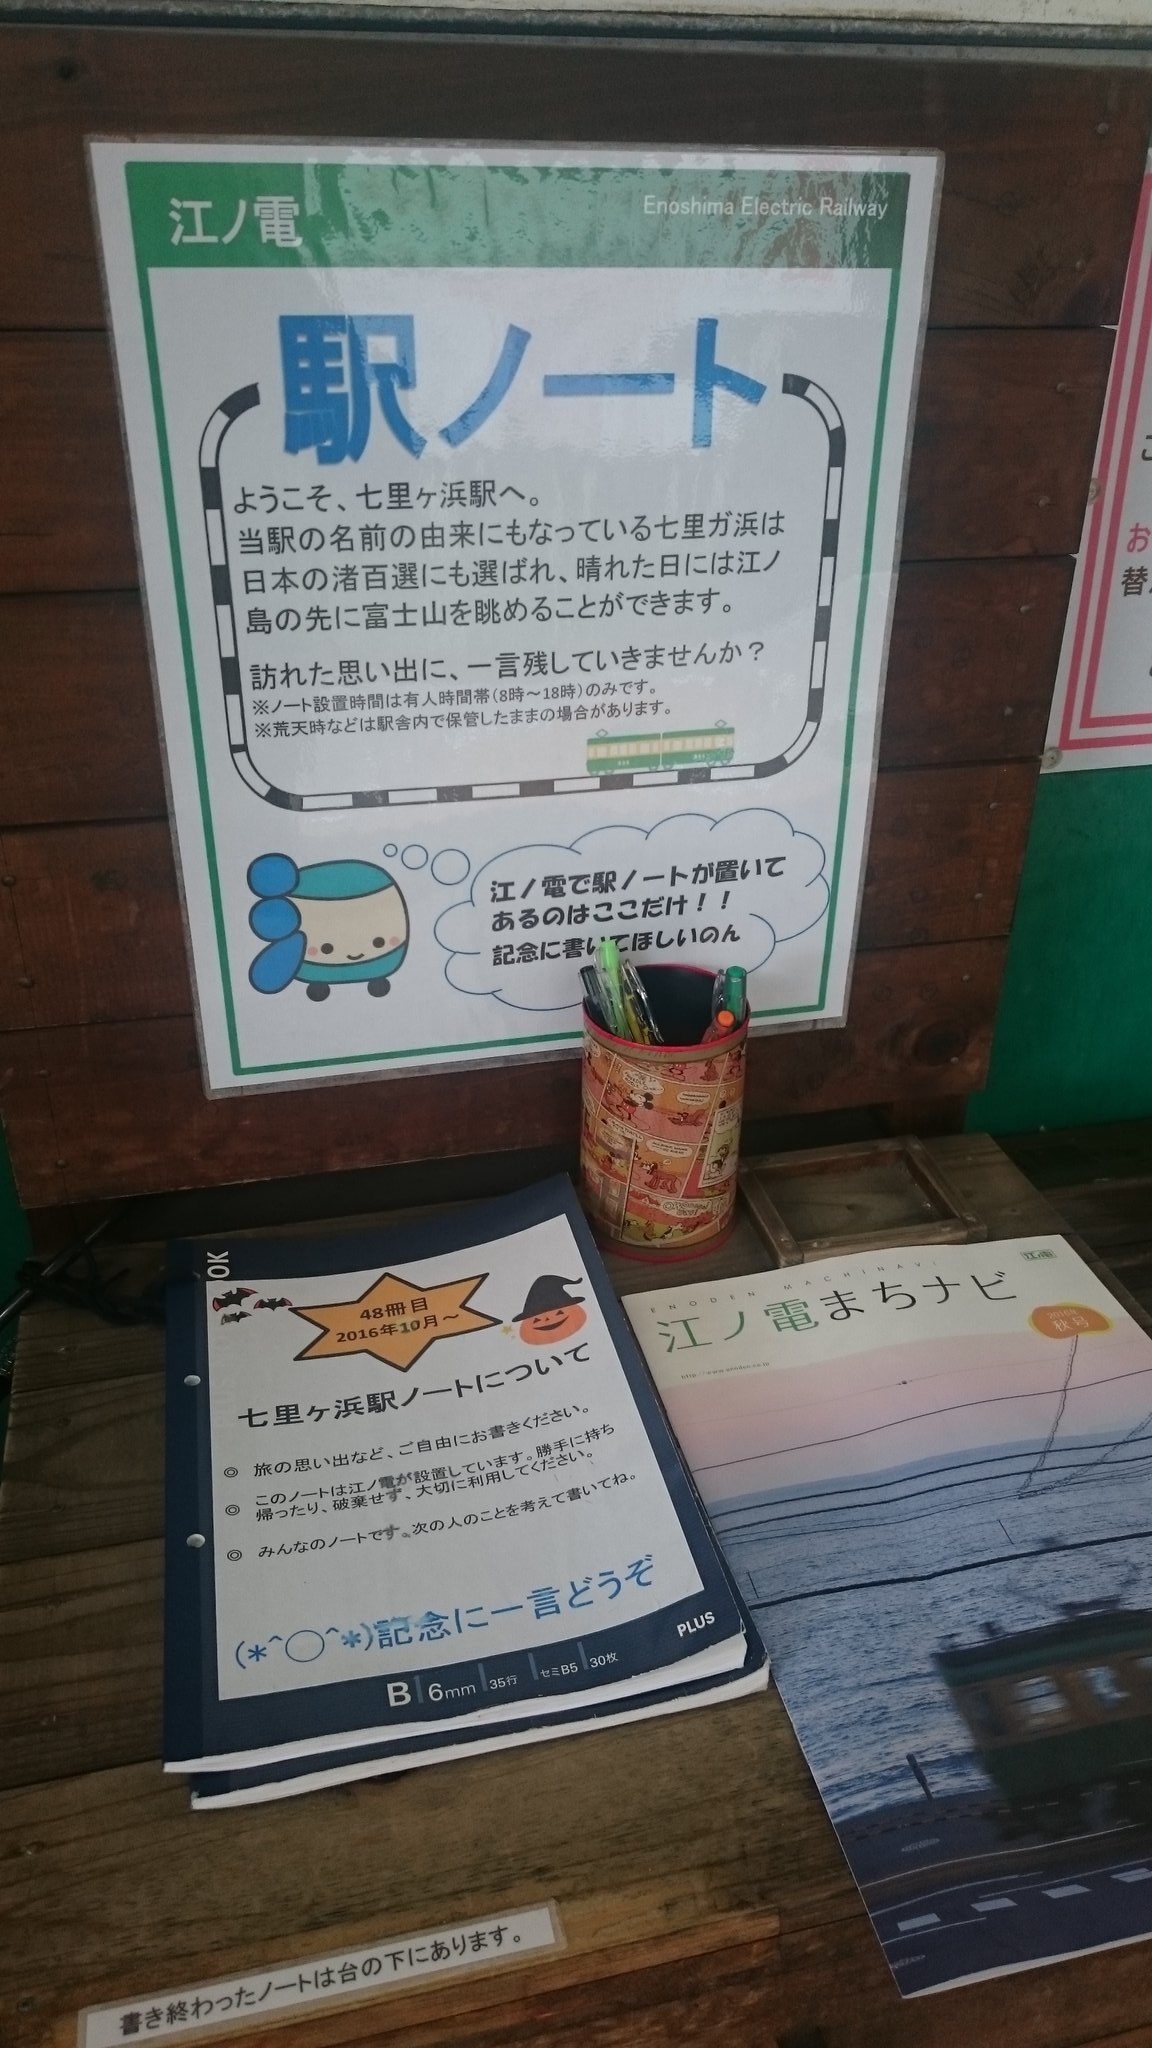 江ノ電
Enoshima Electric Railway
駅ノート
ようこそ、七里ヶ浜駅へ。
当駅の名前の由来にもなっている七里ガ浜は
日本の渚百選にも選ばれ、晴れた日には江ノ
島の先に富士山を眺めることができます。
訪れた思い出に、一言残していきませんか？
※ノート設置時間は有人時間帯(8時～18時)のみです。
※荒天時などは駅舎内で保管したままの場合があります。
江ノ電で駅ノートが置いて
あるのはここだけ！！
記念に書いてほしいのん
お
替
48冊目
2016年10月～
七里ヶ浜駅ノートについて
◎ 旅の思い出など、ご自由にお書きください。
◎ このノートは江ノ電が設置しています。勝手に持ち
帰ったり、破棄せず、大切に利用してください。
◎ みんなのノートです。次の人のことを考えて書いてね。
(*^○^*)記念に一言どうぞ
PLUS
B 6mm 35行 セミB5 30枚
ENODEN MACHINAVI
江ノ電まちナビ
江ノ電
2016年
秋号
http://www.enoden.co.jp
書き終わったノートは台の下にあります。